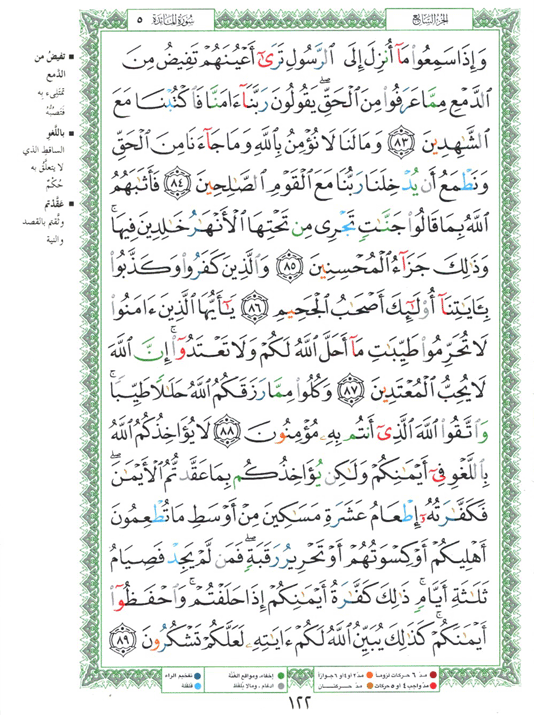 الجزء السابع
سورة المائدة ٥
وَإِذَا سَمِعُوا۟ مَآ أُنزِلَ إِلَى ٱلرَّسُولِ تَرَىٰٓ أَعْيُنَهُمْ تَفِيضُ مِنَ
ٱلدَّمْعِ مِمَّا عَرَفُوا۟ مِنَ ٱلْحَقِّ ۖ يَقُولُونَ رَبَّنَآ ءَامَنَّا فَٱكْتُبْنَا مَعَ
ٱلشَّٰهِدِينَ ٨٣ وَمَا لَنَا لَا نُؤْمِنُ بِٱللَّهِ وَمَا جَآءَنَا مِنَ ٱلْحَقِّ
وَنَطْمَعُ أَن يُدْخِلَنَا رَبُّنَا مَعَ ٱلْقَوْمِ ٱلصَّٰلِحِينَ ٨٤ فَأَثَٰبَهُمُ
ٱللَّهُ بِمَا قَالُوا۟ جَنَّٰتٍ تَجْرِى مِن تَحْتِهَا ٱلْأَنْهَٰرُ خَٰلِدِينَ فِيهَا ۚ
وَذَٰلِكَ جَزَآءُ ٱلْمُحْسِنِينَ ٨٥ وَٱلَّذِينَ كَفَرُوا۟ وَكَذَّبُوا۟
بِـَٔايَٰتِنَآ أُو۟لَٰٓئِكَ أَصْحَٰبُ ٱلْجَحِيمِ ٨٦ يَٰٓأَيُّهَا ٱلَّذِينَ ءَامَنُوا۟
لَا تُحَرِّمُوا۟ طَيِّبَٰتِ مَآ أَحَلَّ ٱللَّهُ لَكُمْ وَلَا تَعْتَدُوٓا۟ ۚ إِنَّ ٱللَّهَ
لَا يُحِبُّ ٱلْمُعْتَدِينَ ٨٧ وَكُلُوا۟ مِمَّا رَزَقَكُمُ ٱللَّهُ حَلَٰلًا طَيِّبًا ۚ
وَٱتَّقُوا۟ ٱللَّهَ ٱلَّذِىٓ أَنتُم بِهِۦ مُؤْمِنُونَ ٨٨ لَا يُؤَاخِذُكُمُ ٱللَّهُ
بِٱللَّغْوِ فِىٓ أَيْمَٰنِكُمْ وَلَٰكِن يُؤَاخِذُكُم بِمَا عَقَّدتُّمُ ٱلْأَيْمَٰنَ ۖ
فَكَفَّٰرَتُهُۥٓ إِطْعَامُ عَشَرَةِ مَسَٰكِينَ مِنْ أَوْسَطِ مَا تُطْعِمُونَ
أَهْلِيكُمْ أَوْ كِسْوَتُهُمْ أَوْ تَحْرِيرُ رَقَبَةٍ ۖ فَمَن لَّمْ يَجِدْ فَصِيَامُ
ثَلَٰثَةِ أَيَّامٍ ۚ ذَٰلِكَ كَفَّٰرَةُ أَيْمَٰنِكُمْ إِذَا حَلَفْتُمْ ۚ وَٱحْفَظُوٓا۟
أَيْمَٰنَكُمْ ۚ كَذَٰلِكَ يُبَيِّنُ ٱللَّهُ لَكُمْ ءَايَٰتِهِۦ لَعَلَّكُمْ تَشْكُرُونَ ٨٩
■ تفيضُ من
الدَّمع
تمتلىء به
فتصبُّه
■ باللَّغو
الساقط الذي
لا يتعلَّق به
حُكمٌ
■ عَقَّدتم
وثَّقتم بالقصد
والنية
مدّ ٦ حركات لزوماً
مدّ ٢ او ٤ او ٦ جوازاً
مدّ واجب ٤ او ٥ حركات
مدّ حركتان
إخفاء، ومواقع الغُنَّة
ادغام، وما لا يُلفظ
تفخيم الراء
قلقلة
١٢٢